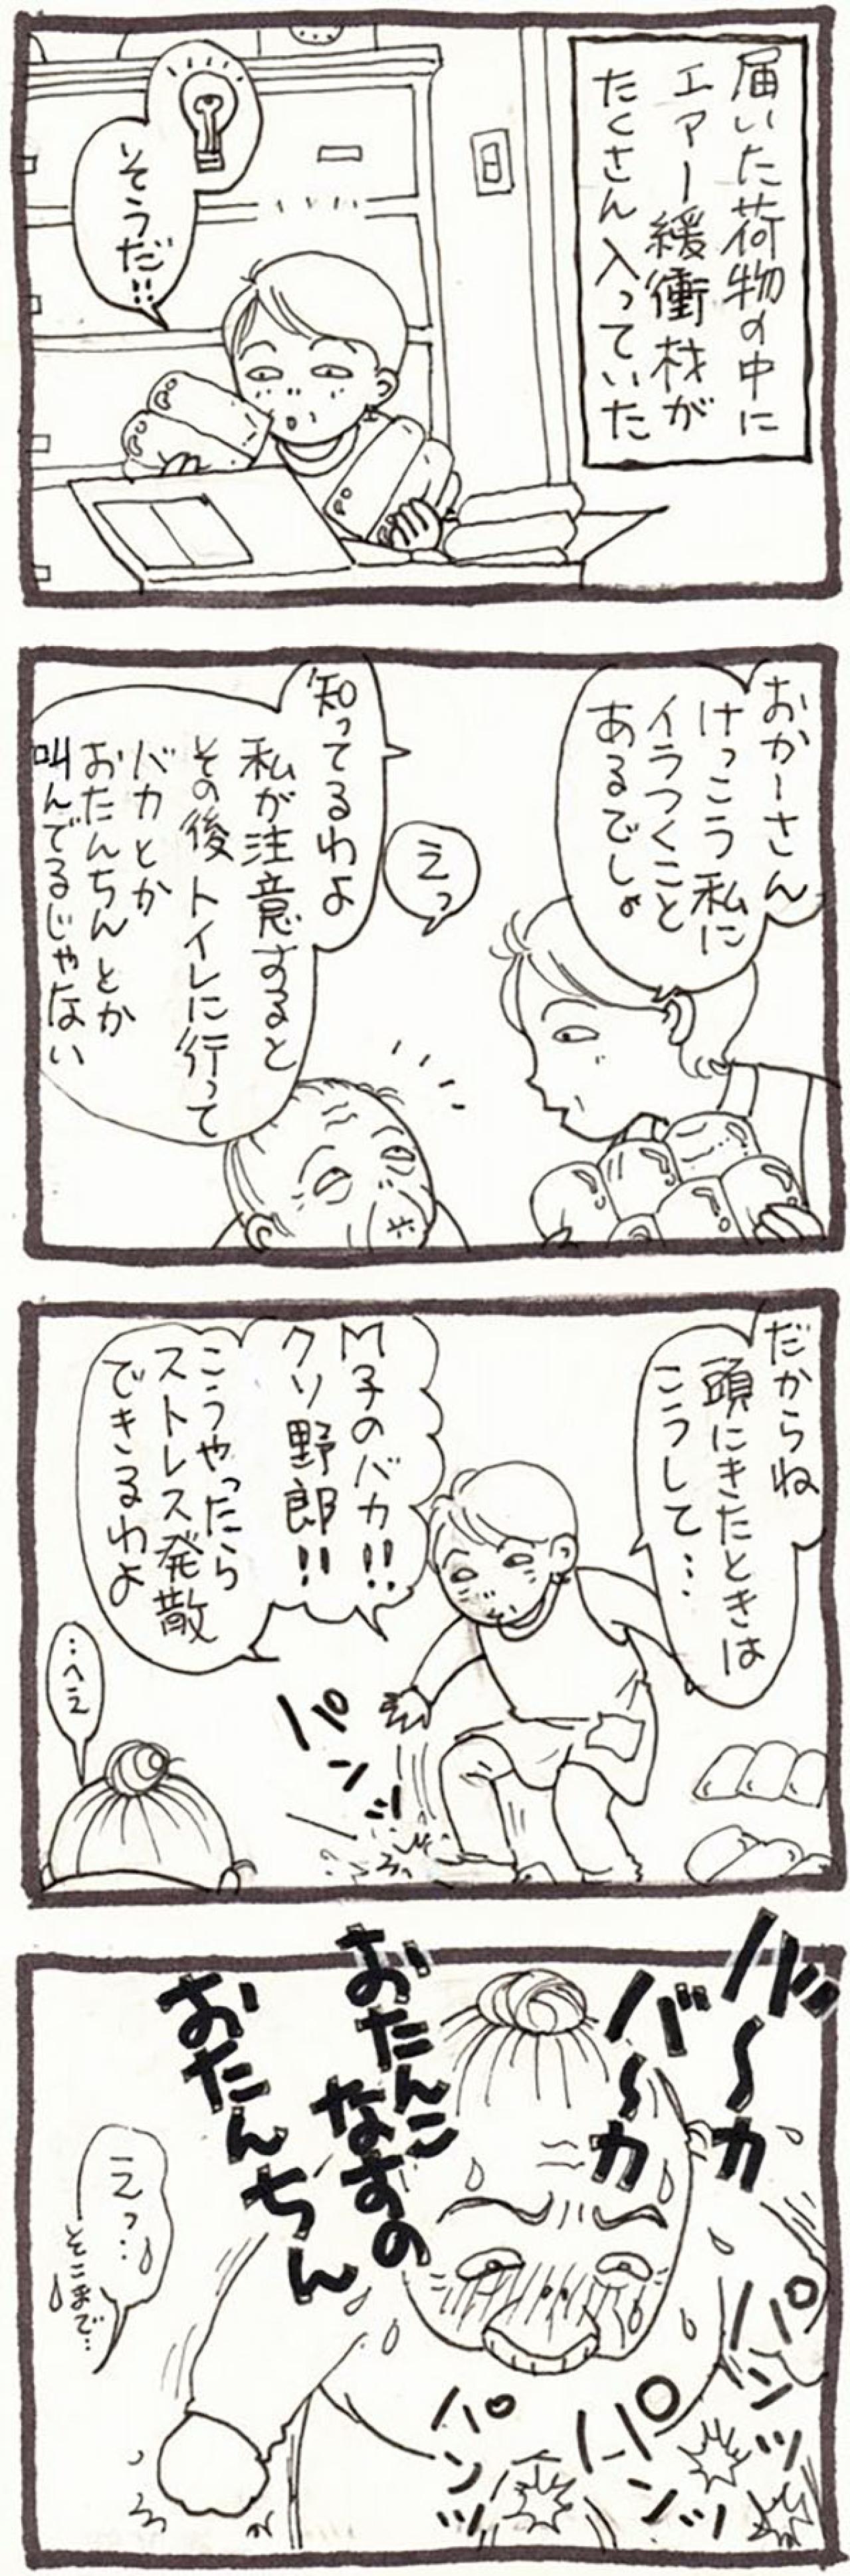 届いた荷物の中に
エアー緩衝材が
たくさん入っていた
そうだ!!
おかーさん
けっこう私に
イラつくこと
あるでしょ
えっ
知ってるわよ
私が注意すると
その後トイレに行って
バカとか
おたんちんとか
叫んでるじゃない
だからね
頭にきたときは
こうして…
M子のバカ!!
クソ野郎!!
こうやったら
ストレス発散
できるわよ
パンッ!
…へえ
バ〜カ
バ〜カ
おたんこ
なすの
おたんちん
えっ…
そこまで…
パンッ
パンッ
パンッ